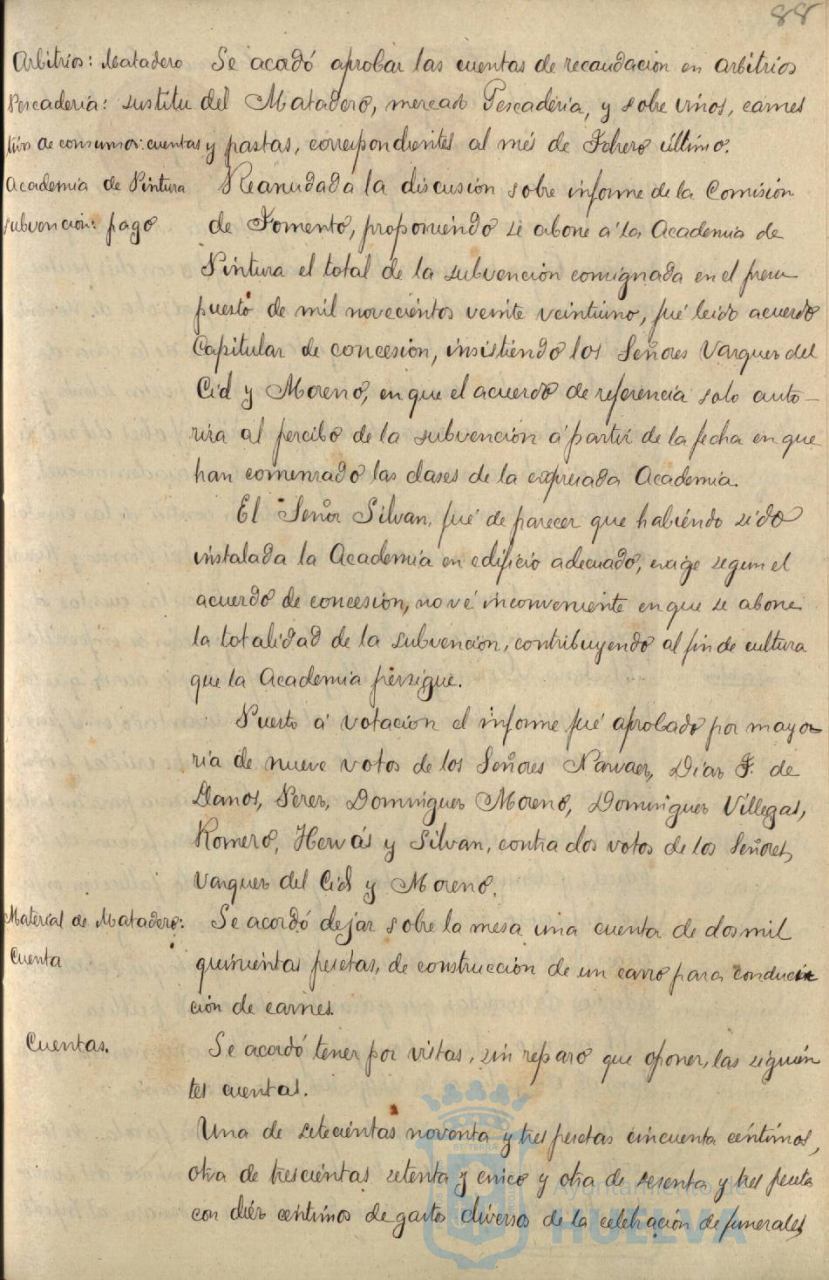 88
Arbitrios: Matadero Se acodó aprobar las cuentas de recaudacion en arbitrios
Pescaderia: sustitu del Matadero, mercado Pescaderia, y sobre vinos, carnes
tivos de consumos: cuentas y pastas, correspondientes al més de Febrero último.
Academia de Pintura Reanudada la discusión sobre informe de la Comisión
subvención: pago de Fomento, proponiendo se abone a la Academia de
Pintura el total de la subvención consignada en el presu
puesto de mil novecientos veinte veintiuno, fué leido acuerdo
Capitular de concesion, insistiendo los Señores Vazquez del
Cid y Moreno, en que el acuerdo de referencia solo auto-
riza al percibo de la subvención á partir de la fecha en que
han comenzado las clases de la expresada Academia.
El Señor Silvan, fué de parecer que habiendo sido
instalada la Academia en edificio adecuado, exige segun el
acuerdo de concesion, no vé inconveniente en que se abone
la totalidad de la subvencion, contribuyendo al fin de cultura
que la Academia persigue.
Puesto á votacion el informe fué aprobado por mayo-
ria de nueve votos de los Señores Narvaez, Diaz F. de
Llanos, Perez, Dominguez Moreno, Dominguez Villegas,
Romero, Hervás y Silvan, contra dos votos de los Señores
Vazquez del Cid y Moreno.
Material de Matadero: Se acordó dejar sobre la mesa una cuenta de dos mil
Cuenta quinientas pesetas, de construcción de un carro para conduc
ción de carnes.
Cuentas. Se acordó tener por vistas, sin reparo que oponer, las siguien
tes cuentas.
Una de setecientas noventa y tres pesetas cincuenta centimos,
otra de trescientas setenta y cinco y otra de sesenta y tres peseta
con diez centimos de gastos diversos de la celebración de funerales
Ayuntamiento de
HUELVA